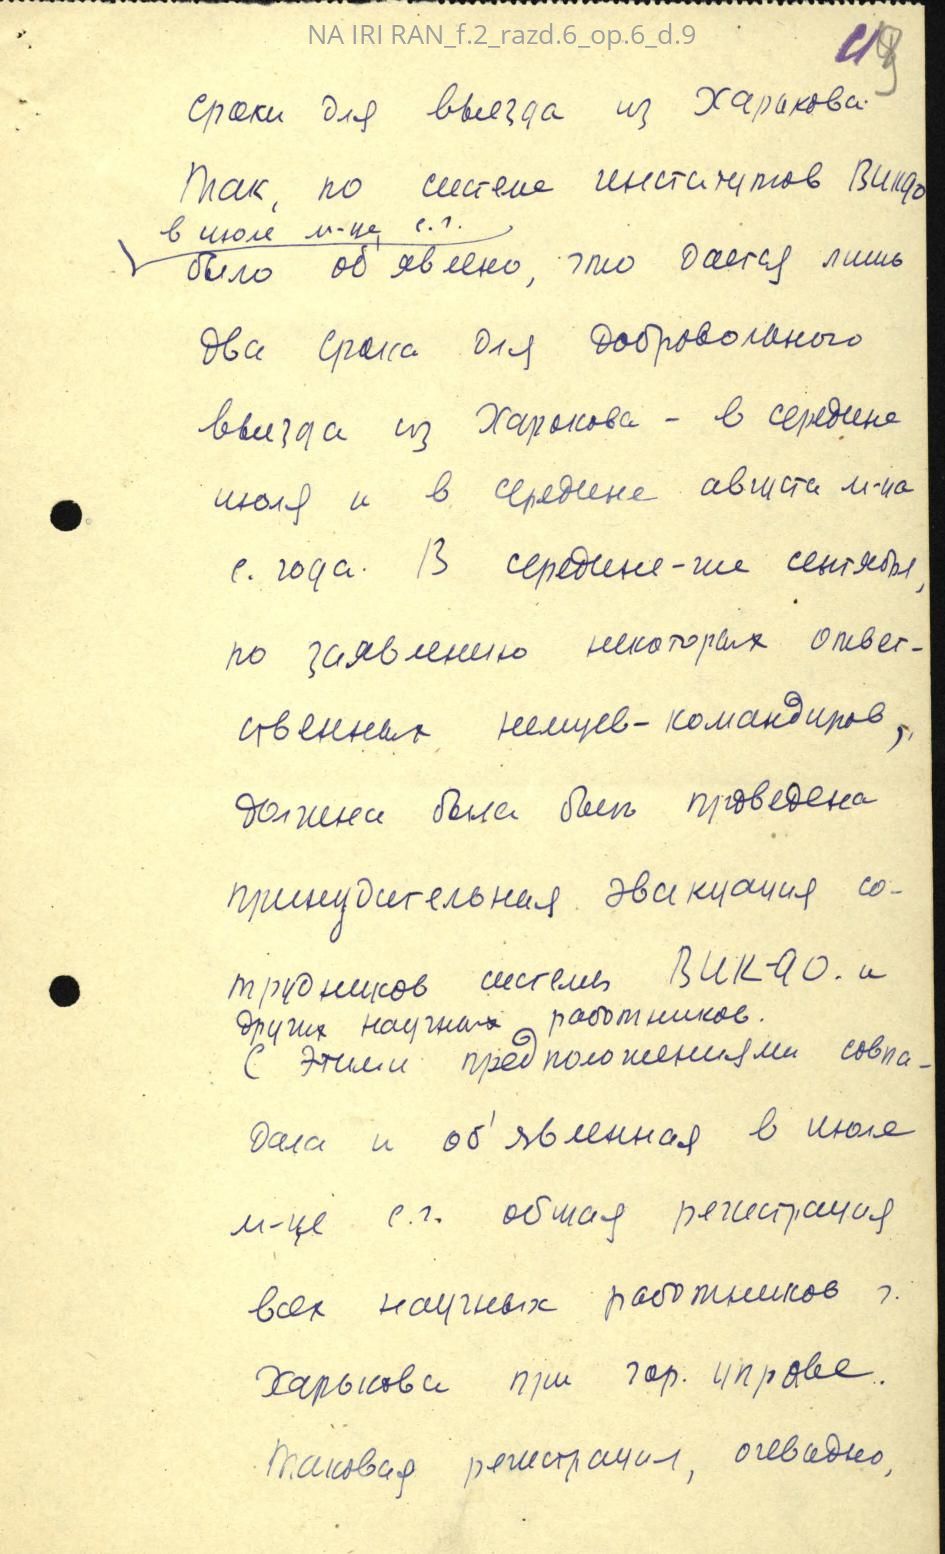 NA IRI RAN_f.2_razd.6_op.6_d.9
сроки для выезда из Харькова.
Так, по системе институтов ВИКДО
в июле м-це с.г.
было об'явлено, что дается лишь
два срока для добровольного
выезда из Харькова - в середине
июля и в середине августа м-ца
с. года. В середине-же сентября,
по заявлению некоторых ответ-
ственных немцев-командиров,
должна была быть проведена
принудительная эвакуация со-
трудников системы ВИК-ДО. и
других научных работников.
С этими предположениями совпа-
дала и об'явленная в июле
м-це с.г. общая регистрация
всех научных работников г.
Харькова при гор. управе.
Таковая регистрация, очевидно,